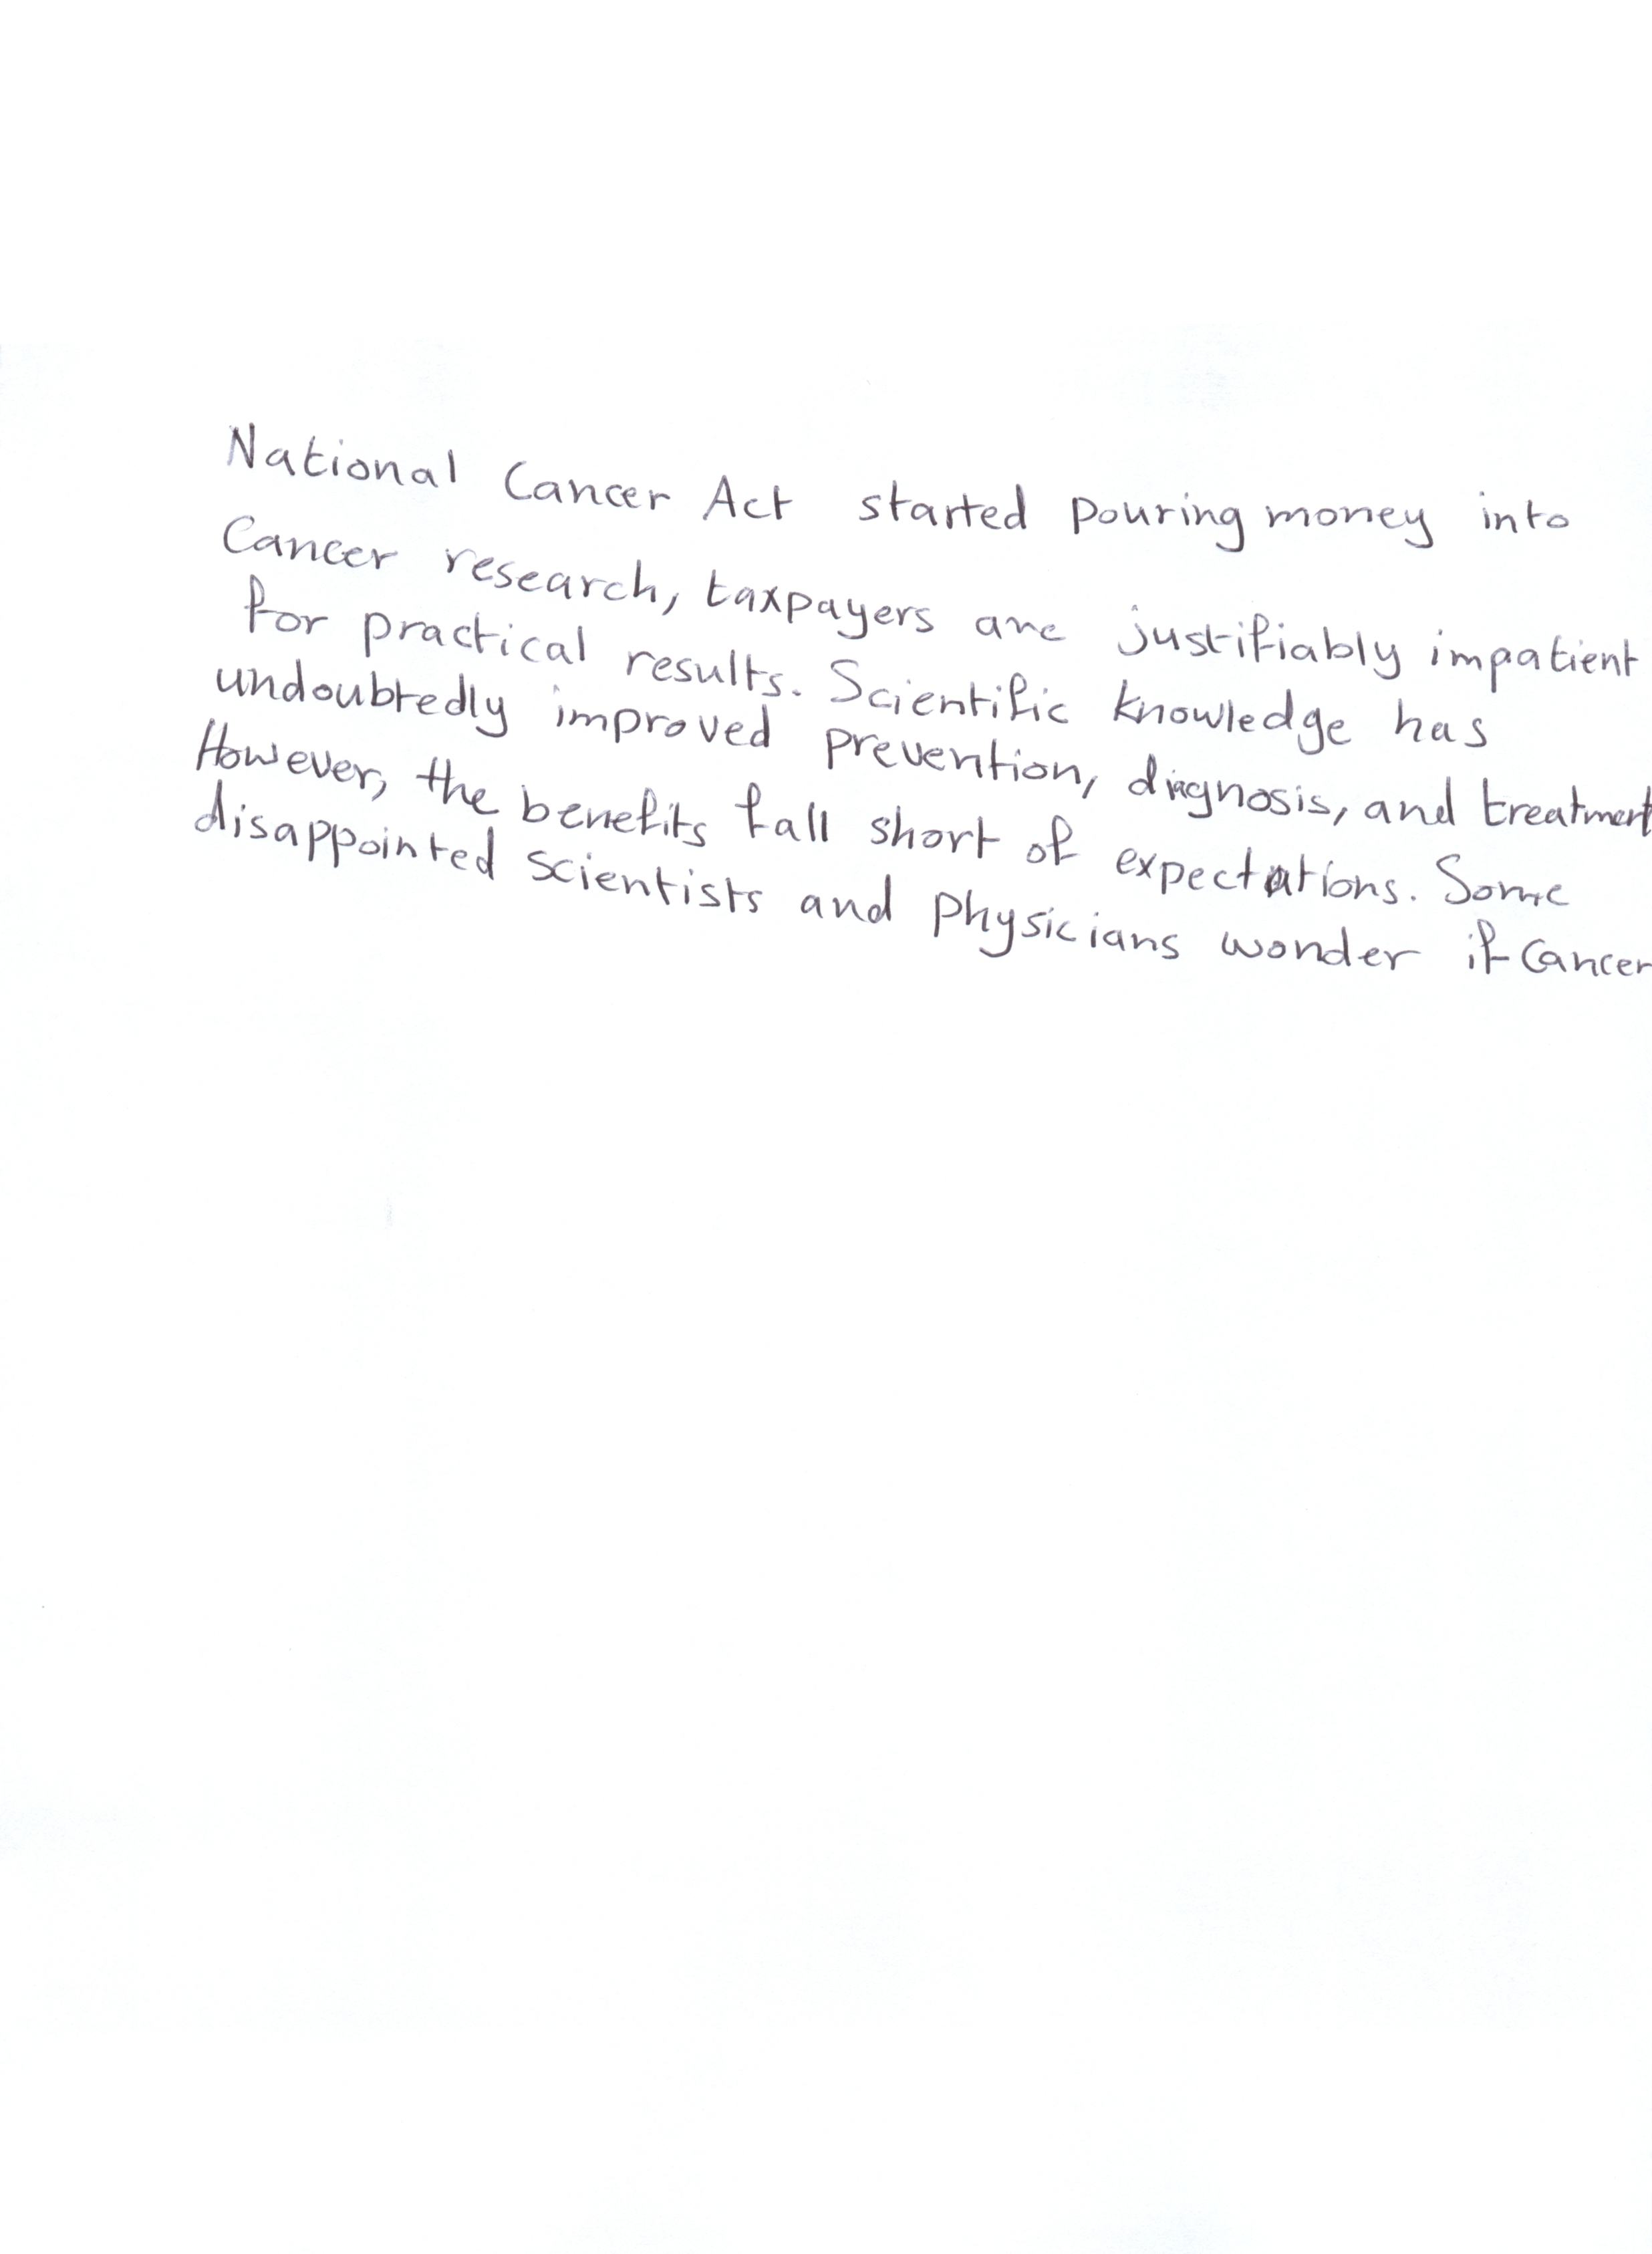 National Cancer Act started pouring money into
Cancer research, taxpayers are justifiably impatient
for practical results. Scientific knowledge has
undoubtedly improved prevention, diagnosis, and treatment
However, the benefits fall short of expectations. Some
disappointed scientists and physicians wonder if Cancer